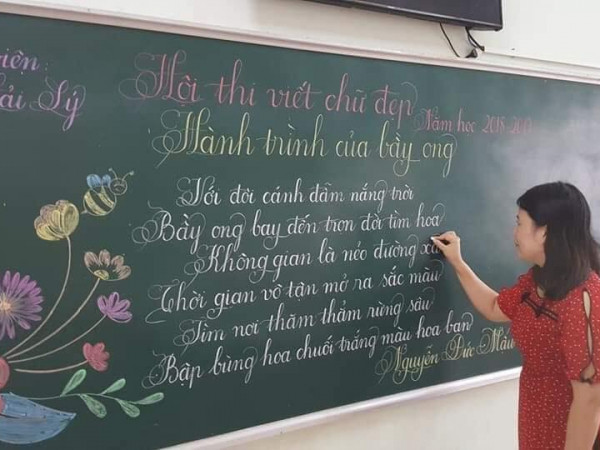 Hội thi viết chữ đẹp
Năm học 2018-201
Hành trình của bầy ong
Với đôi cánh đẫm nắng trời
Bầy ong bay đến trọn đời tìm hoa
Không gian là nẻo đường xa
Thời gian vô tận mở ra sắc màu
Tìm nơi thăm thẳm rừng sâu
Bập bùng hoa chuối trắng màu hoa ban
Nguyễn Đức Mậu
iện:
ải Lý